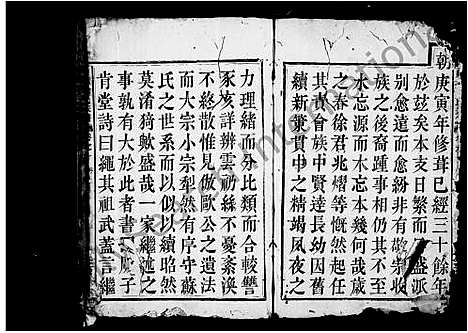 朝庚寅年修葺已經三十餘年
於茲矣本支日繁而 盛派
别愈遠而愈紛非有敬宗收
族之後裔踵事相仍其不至
木忘源而木忘本幾何哉歲
之春徐君兆熠等慨然起任
其 會族中賢達長幼因舊
續新兼貫中之精竭夙夜之
力理緒而分比類而合較讐
豕亥詳辨雲礽絲不憂紊渙
不終散惟見倣歐公之遺法
而大宗小宗犁然有序守蘇
氏之世系而以似以續昭然
莫淆猗歟盛哉一家繼述之
事孰有大於此者書 子
肯堂詩曰繩其祖武蓋言繼